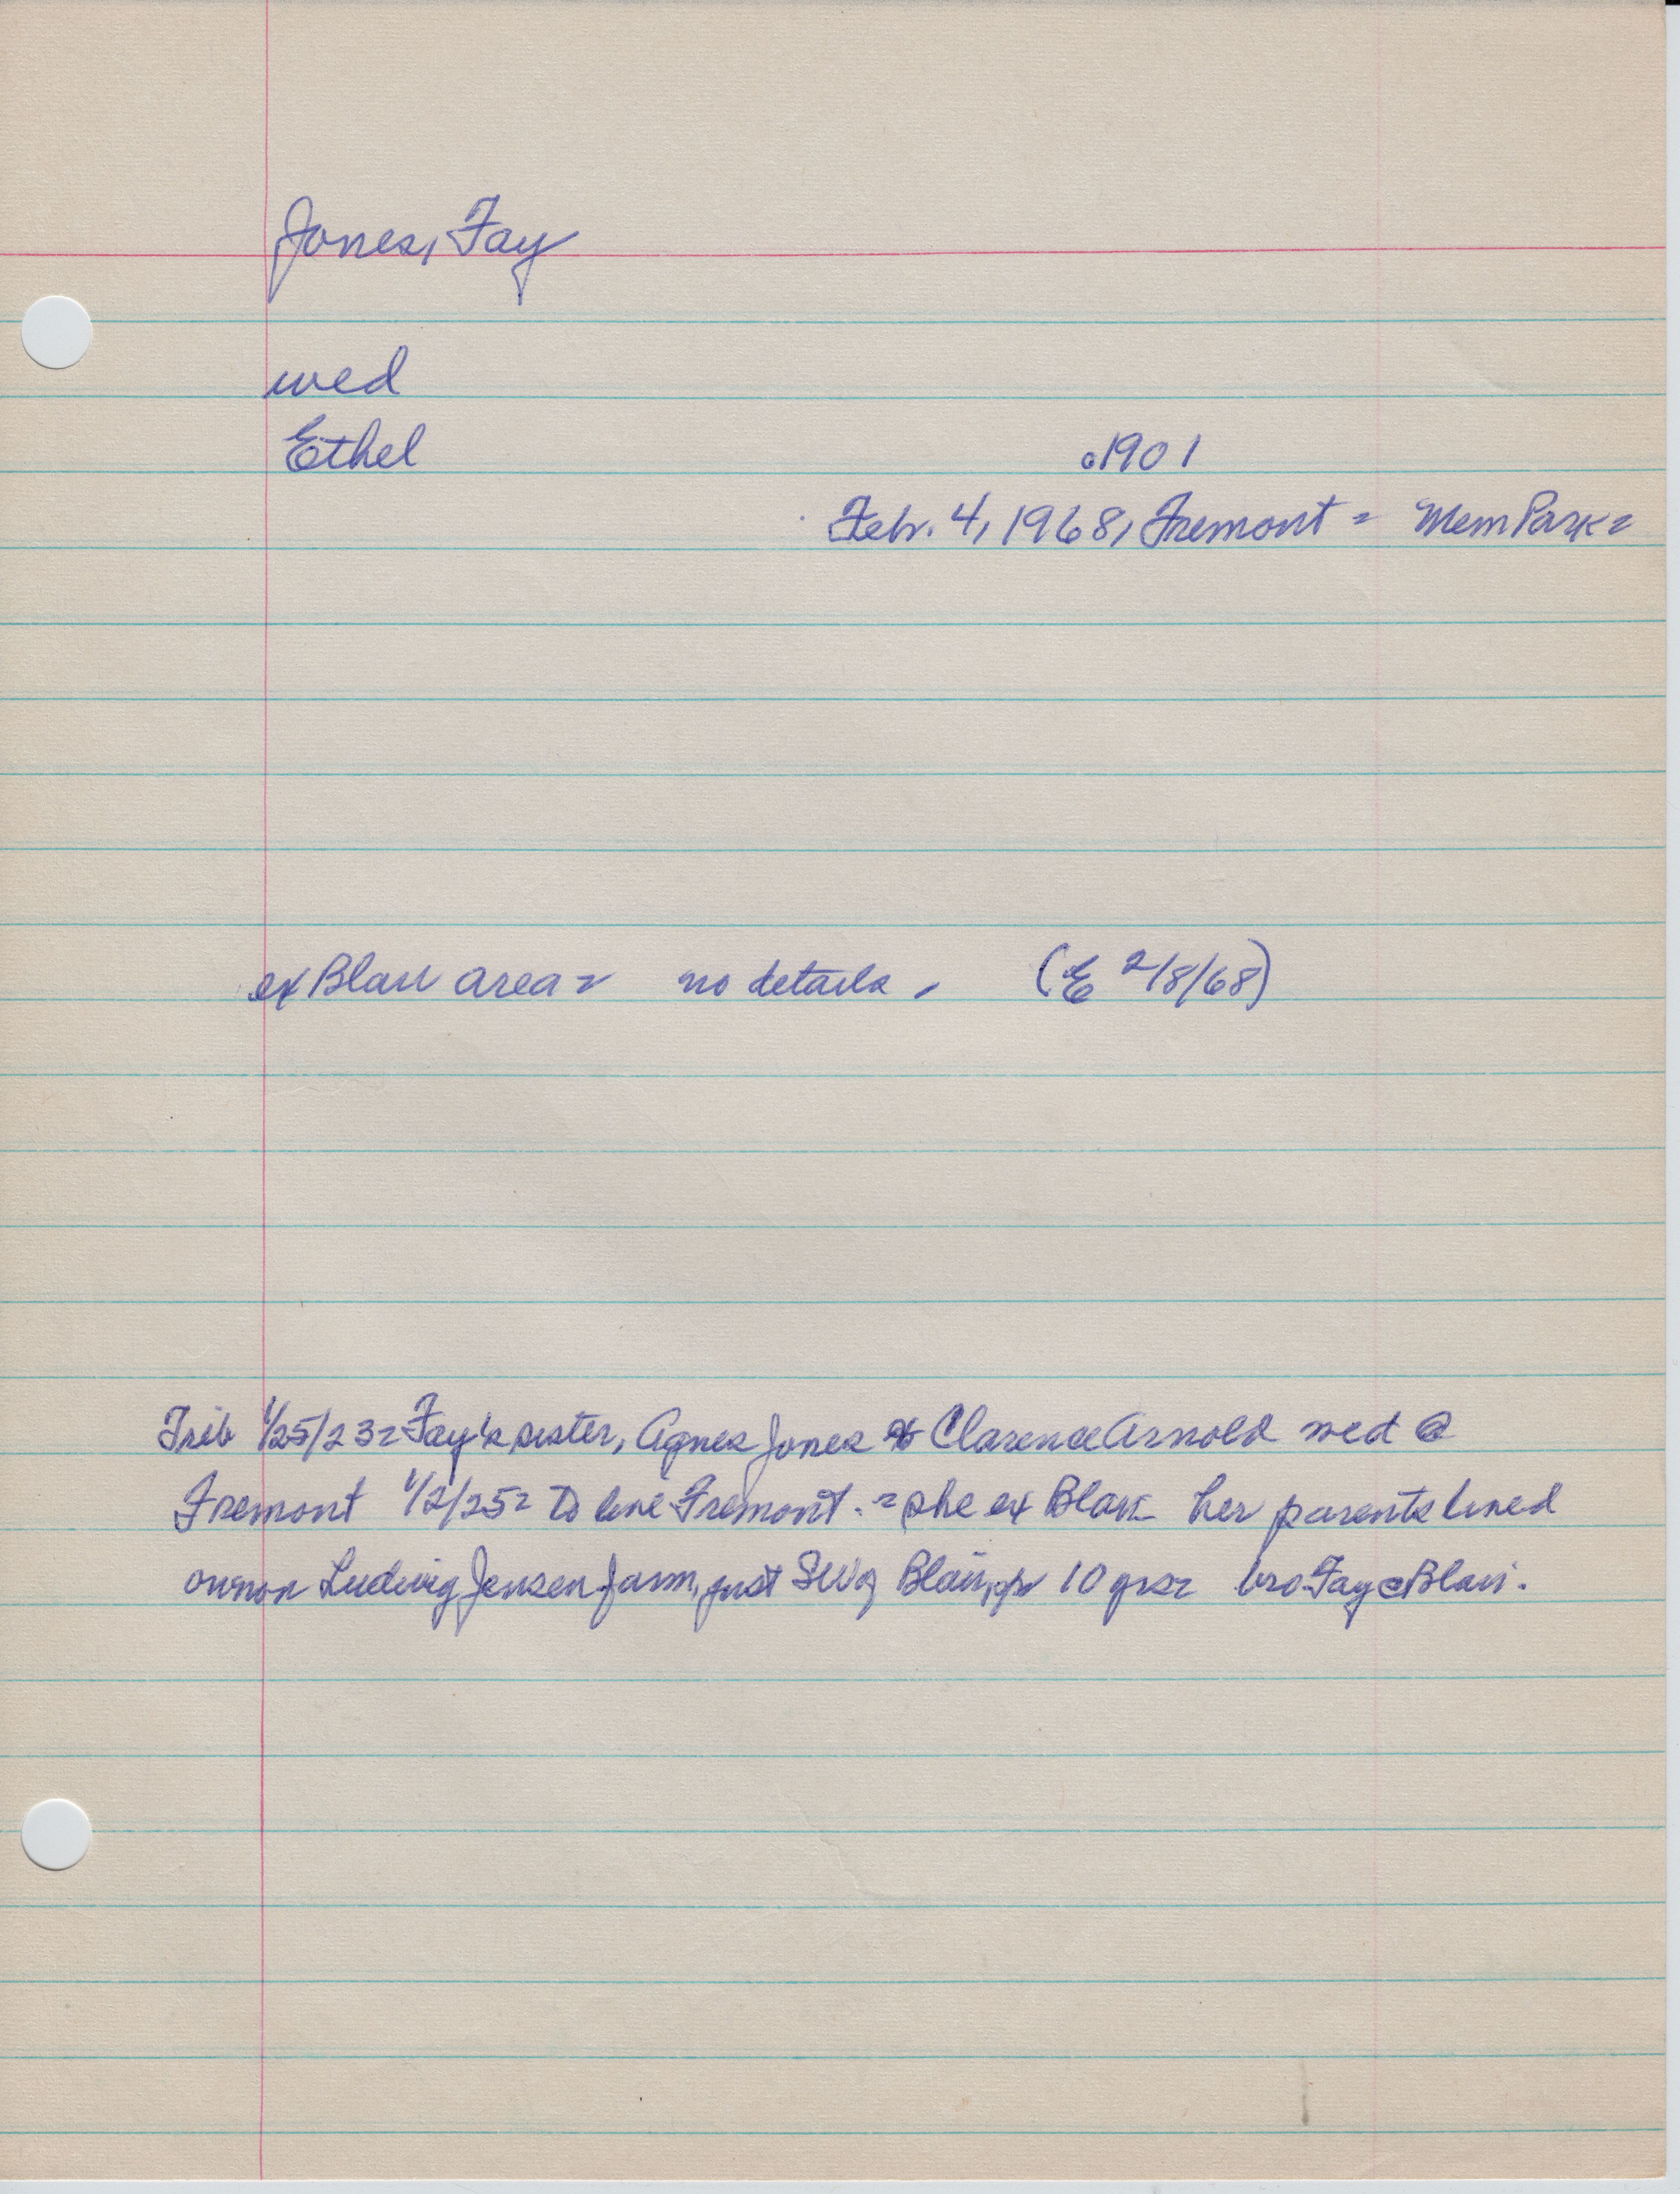 Jones, Fay
wed
Ethel
c1901
Feb. 4, 1968, Fremont = Mem Park=
ex Blair area= no details. (E 2/8/68)
Trib 1/25/23= Fay's sister, Agnes Jones & Clarence Arnold wed @
Fremont 1/2/25= To live Fremont. = she ex Blair her parents lived
on Ludwig Jensen farm, just SW of Blair, for 10 yrs= bro. Fay @ Blair.